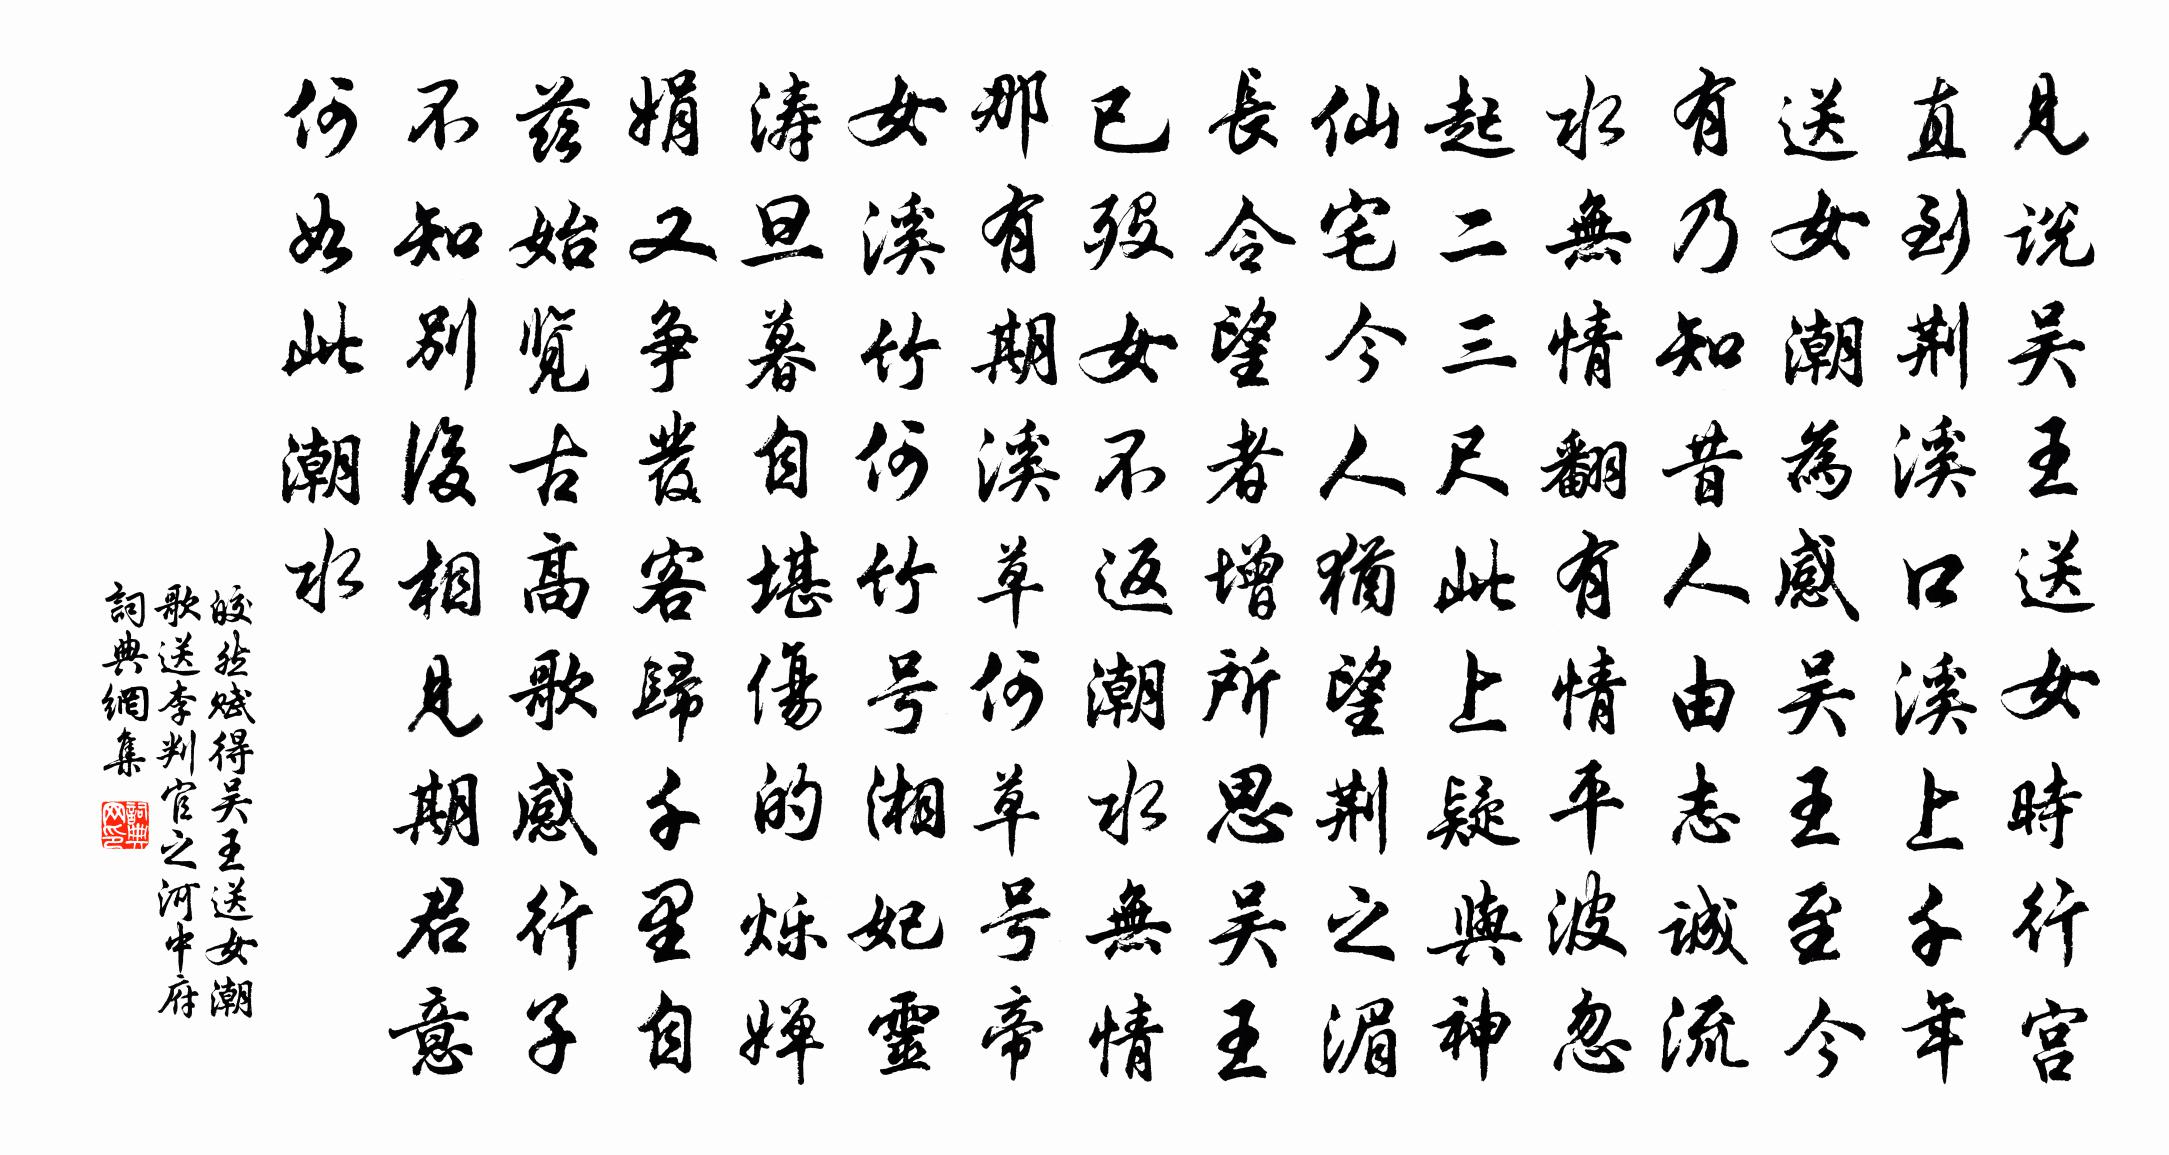 見説吴王送女時行宫
直到荆溪口溪上千年
送女潮為感吴王至今
有乃知昔人由志誠流
水無情翻有情平波忽
起二三尺此上疑與神
仙宅今人猶望荆之湄
長令望者增所思吴王
已殁女不返潮水無情
那有期溪草何草号帝
女溪竹何竹号湘妃靈
涛旦暮自堪傷的烁婵
娟又争發客歸千里自
兹始览古高歌感行子
不知别後相見期君意
何如此潮水
皎然赋得吴王送女潮
歌送李判官之河中府
詞典網集